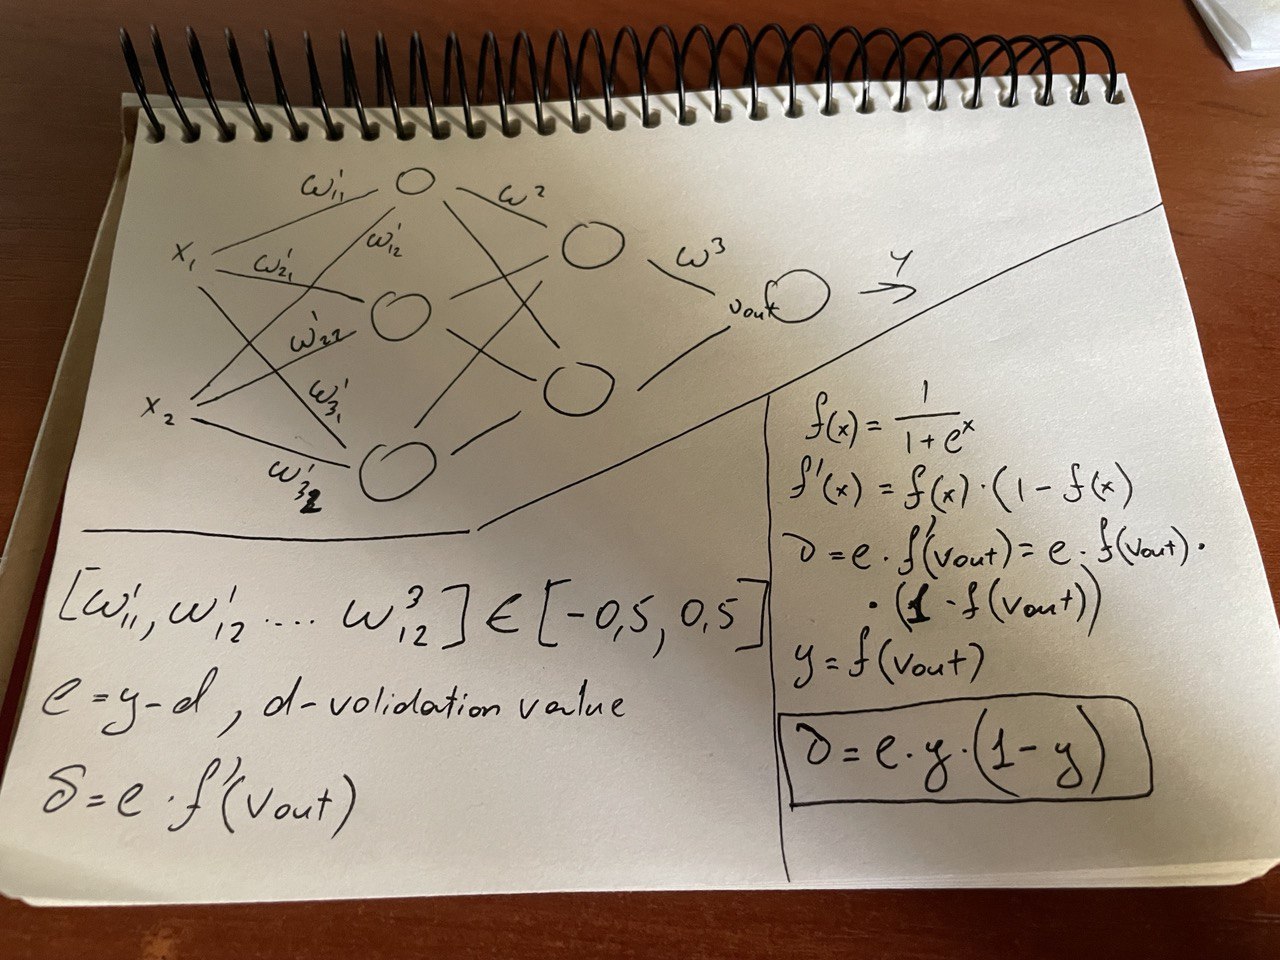 ω¹₁₁
ω²
x₁
ω¹₂₁
ω¹₁₂
ω³
y
ω¹₂₂
vout
x₂
ω¹₃₁
ω¹₃₂
[ω¹₁₁, ω¹₁₂ .... ω³₁₂] ∈ [-0,5, 0,5]
e = y-d, d-validation value
δ = e · f'(vout)
f(x) = 1/(1+eˣ)
f'(x) = f(x)·(1-f(x)
δ = e · f'(vout) = e · f(vout) ·
· (1-f(vout))
y = f(vout)
δ = e·y·(1-y)